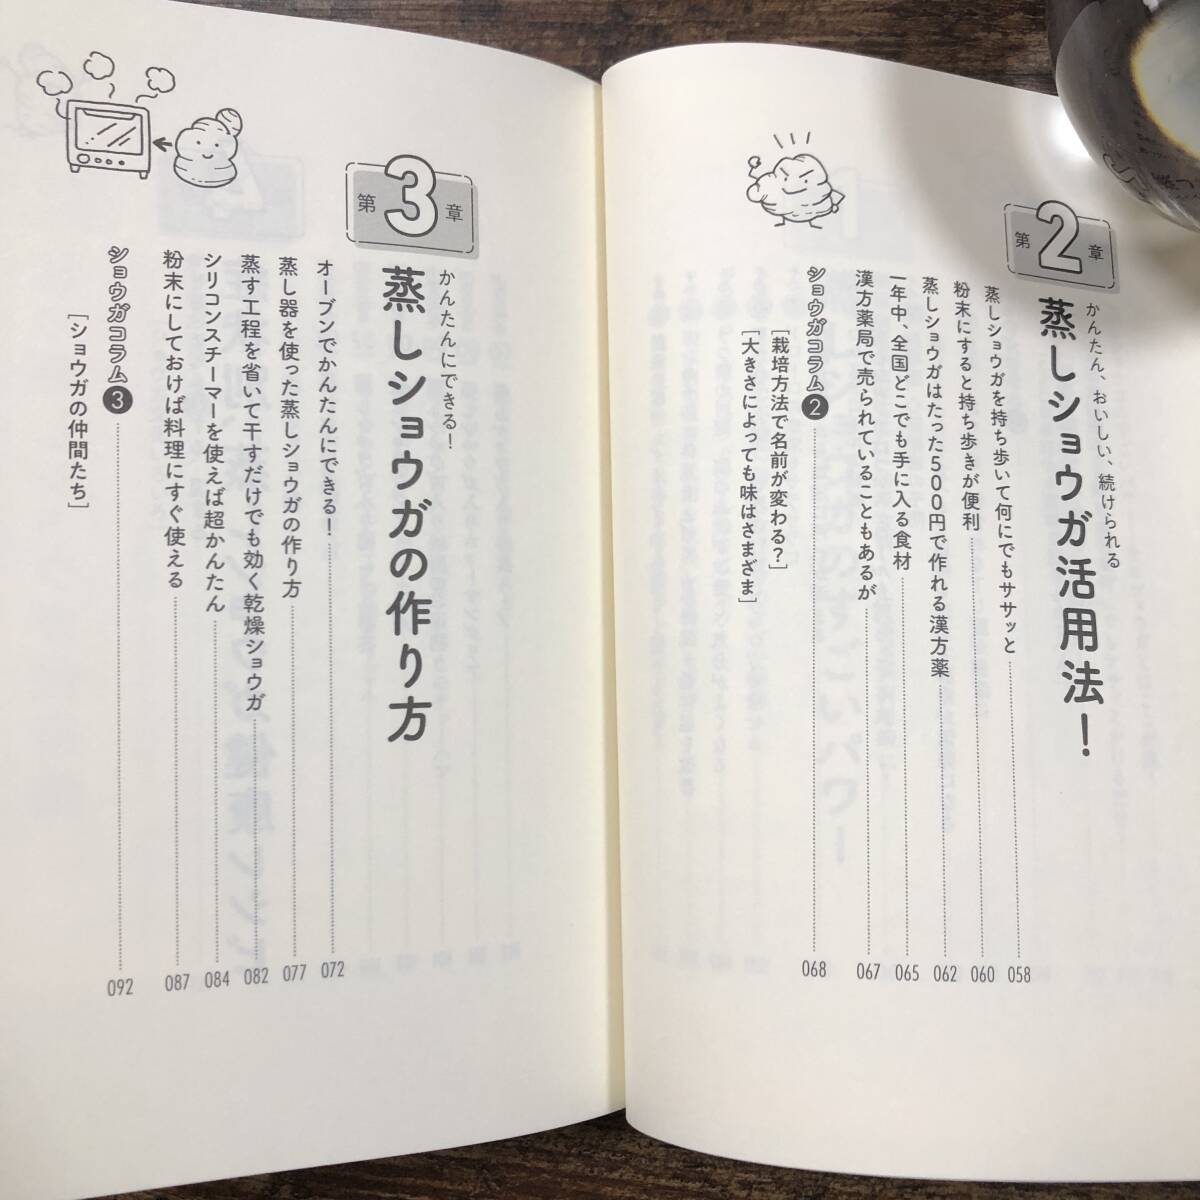 第2章
かんたん、おいしい、続けられる
蒸しショウガ活用法！
蒸しショウガを持ち歩いて何にでもササッと 058
粉末にすると持ち歩きが便利 060
蒸しショウガはたった500円で作れる漢方薬 062
一年中、全国どこでも手に入る食材 065
漢方薬局で売られていることもあるが 067
ショウガコラム❷ 068
［栽培方法で名前が変わる？］
［大きさによっても味はさまざま］
第3章
かんたんにできる！
蒸しショウガの作り方
オーブンでかんたんにできる！ 072
蒸し器を使った蒸しショウガの作り方 077
蒸す工程を省いて干すだけでも効く乾燥ショウガ 082
シリコンスチーマーを使えば超かんたん 084
粉末にしておけば料理にすぐ使える 087
ショウガコラム❸ 092
［ショウガの仲間たち］